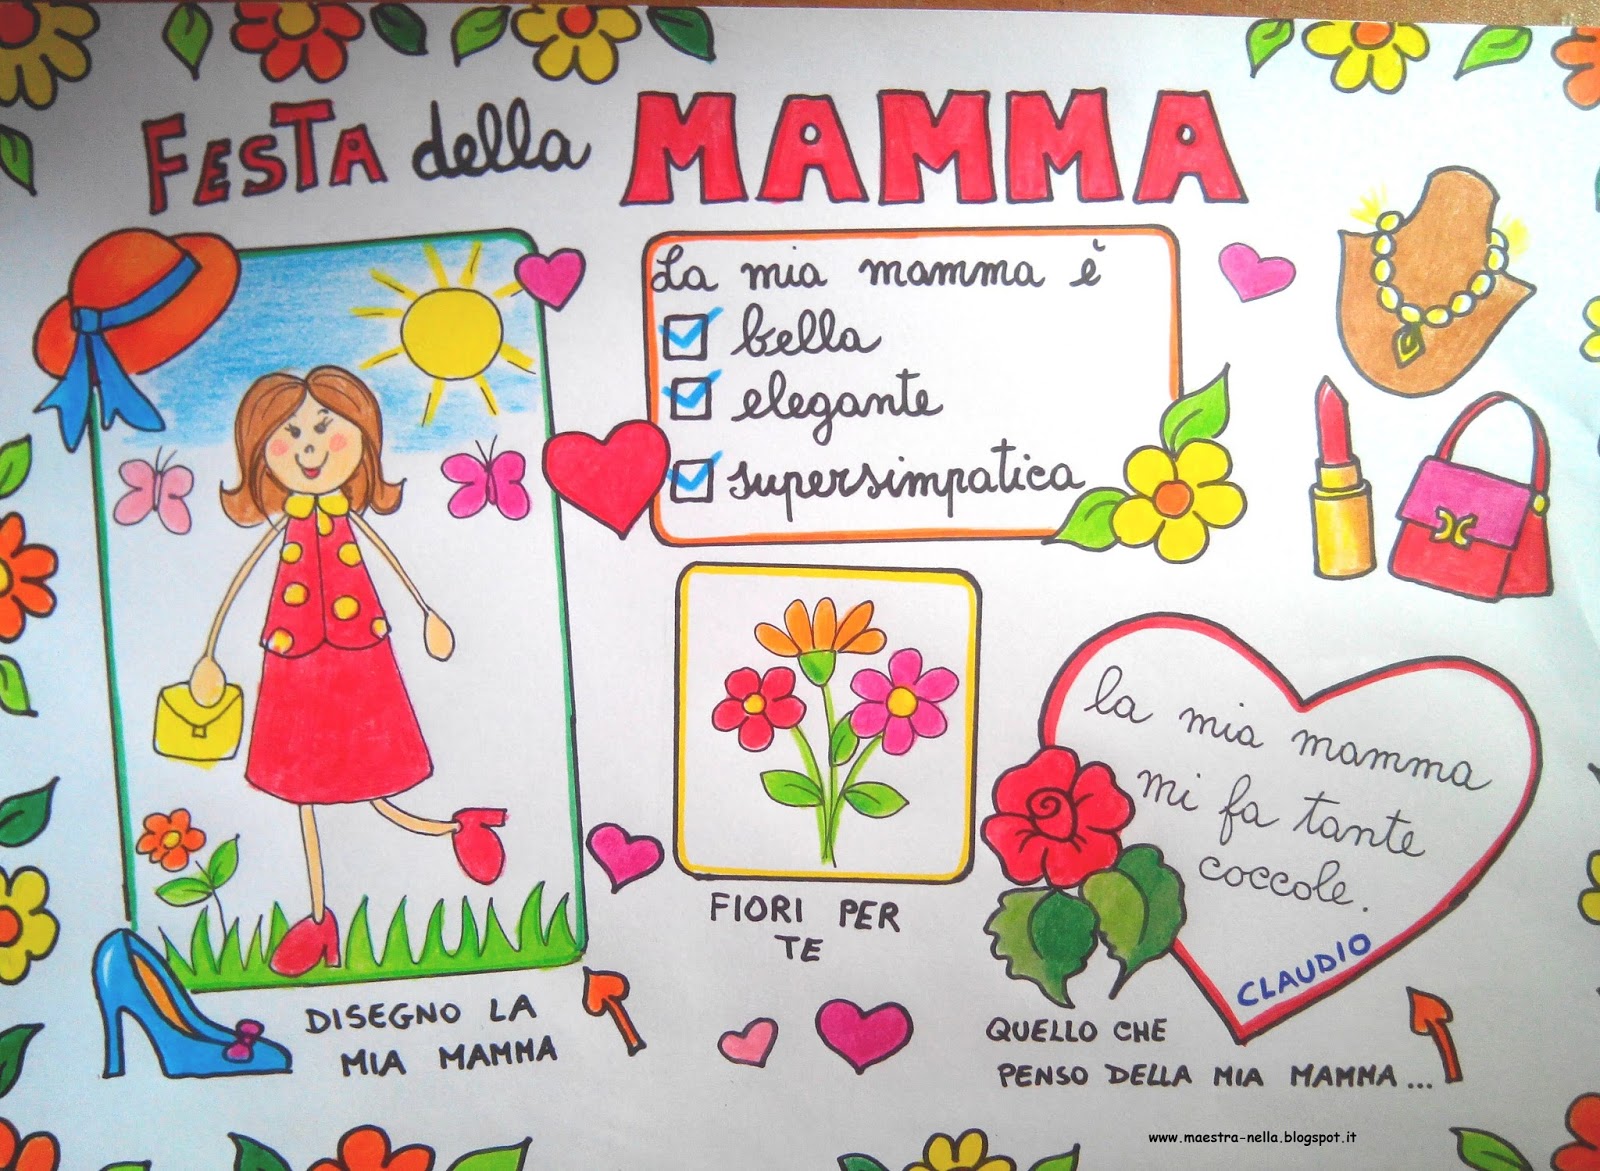 FESTA della MAMMA
La mia mamma è
bella
elegante
supersimpatica
FIORI PER
TE
la mia mamma
mi fa tante
coccole.
CLAUDIO
DISEGNO LA
MIA MAMMA
QUELLO CHE
PENSO DELLA MIA MAMMA...
www.maestra-nella.blogspot.it